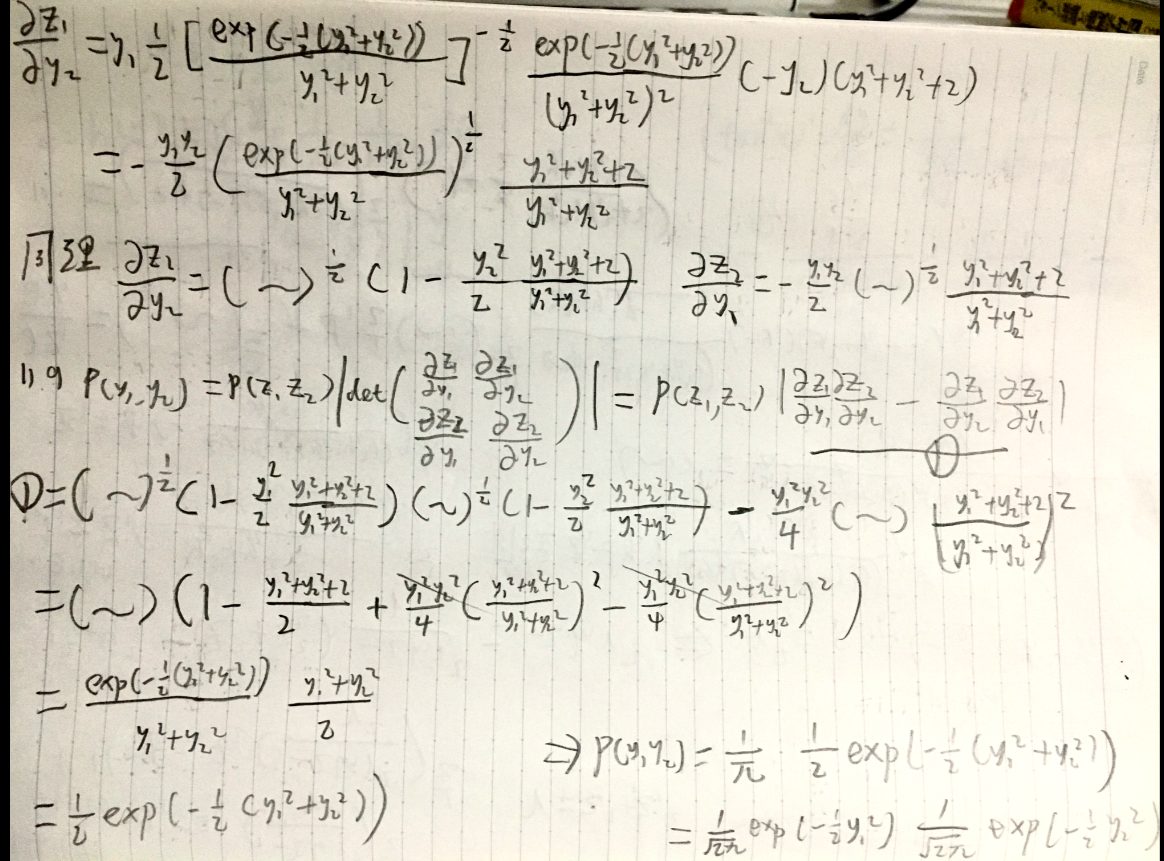 ∂z₁/∂y₂ = y₁ 1/2 [exp(-1/2(y₁²+y₂²))/(y₁²+y₂²)]^(-1/2) exp(-1/2(y₁²+y₂²))/(y₁²+y₂²)² (-y₂)(y₁²+y₂²+2)
= - y₁y₂/2 (exp(-1/2(y₁²+y₂²))/(y₁²+y₂²))^(1/2) (y₁²+y₂²+2)/(y₁²+y₂²)
同理 ∂z₂/∂y₂ = (~)^(1/2) (1 - y₂²/2 (y₁²+y₂²+2)/(y₁²+y₂²)) ∂z₂/∂y₁ = - y₁y₂/2 (~)^(1/2) (y₁²+y₂²+2)/(y₁²+y₂²)
11.9 P(y₁,y₂) = P(z₁z₂) |det(∂z₁/∂y₁ ∂z₁/∂y₂ ∂z₂/∂y₁ ∂z₂/∂y₂)| = P(z₁,z₂) |∂z₁/∂y₁ ∂z₂/∂y₂ - ∂z₁/∂y₂ ∂z₂/∂y₁|
①
① = (~)^(1/2) (1 - y₁²/2 (y₁²+y₂²+2)/(y₁²+y₂²)) (~)^(1/2) (1 - y₂²/2 (y₁²+y₂²+2)/(y₁²+y₂²)) - y₁²y₂²/4 (~) ((y₁²+y₂²+2)/(y₁²+y₂²))²
= (~) (1 - (y₁²+y₂²+2)/2 + y₁²y₂²/4 ((y₁²+y₂²+2)/(y₁²+y₂²))² - y₁²y₂²/4 ((y₁²+y₂²+2)/(y₁²+y₂²))²)
= exp(-1/2(y₁²+y₂²))/(y₁²+y₂²) (y₁²+y₂²)/2
= 1/2 exp(-1/2(y₁²+y₂²))
⇒ P(y₁y₂) = 1/π 1/2 exp(-1/2(y₁²+y₂²))
= 1/√2π exp(-1/2y₁²) 1/√2π exp(-1/2y₂²)